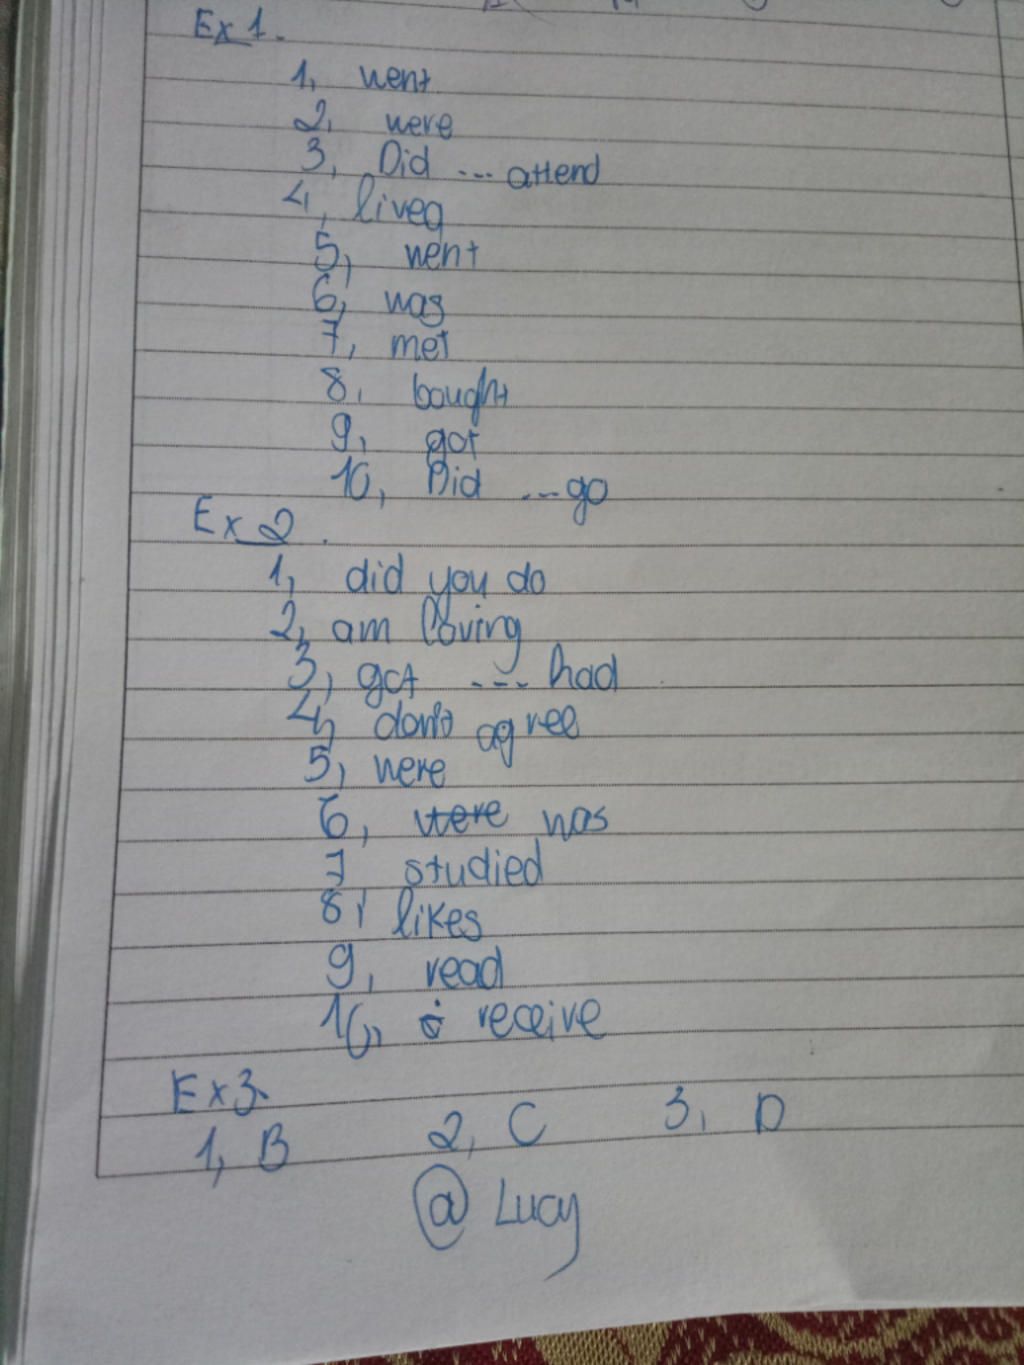 Ex 1.
1, went
2, were
3, Did ... attend
4, lived
5, went
6, was
7, met
8, bought
9, got
10, Did ... go
Ex 2.
1, did you do
2, am loving
3, got --- had
4, don't agree
5, were
6, were was
7 studied
8, likes
9, read
10, receive
Ex3.
1, B 2, C 3, D
@ Lucy